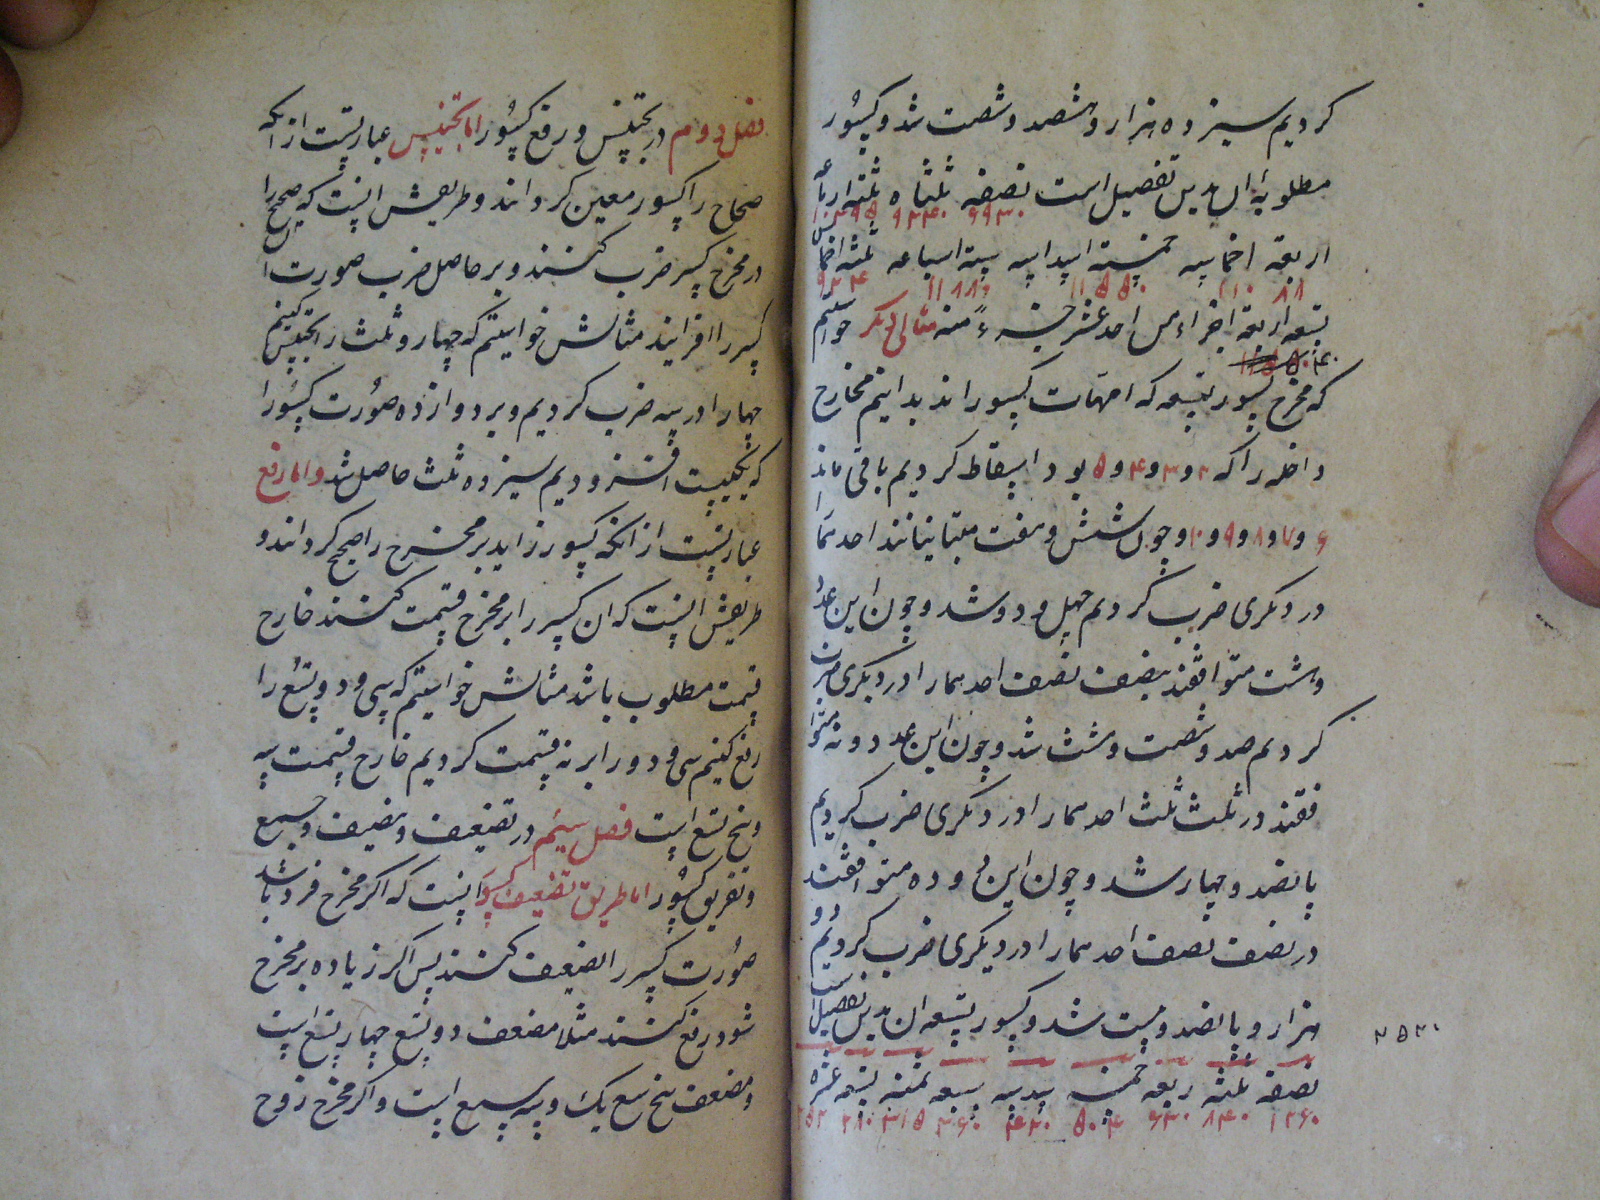 کردیم سیزده هزار و هشصد و شصت شد و کسور
مطلوبهٔ ان بدین تفصیل است نصفه ثلثاه ثلثة اربا
۶۹۳۰ ۹۲۴۰
اربعة اخماسه خمسة اسداسه ستة اسباعه
۱۱۵۵۰ ۱۱۸۸۰
تسعه اربعة اجزاء من احد عشر جزءً منه مثال دیکر خواستیم
که مخرج کسور تسعه که امهات کسوراند بدانیم مخارج
داخله را که ۲ و ۳ و ۴ و ۵ بود اسقاط کردیم باقی ماند
۶ و ۷ و ۸ و ۹ و ۱۰ و چون شش و هفت متباینانند احدهما
در دیکری ضرب کردیم چهل و دو شد و چون این عدد
و هشت متوافقند بنصف نصف احدهما را در دیکری ضرب
کردیم صد و شصت و هشت شد و چون این عدد و نه متوا
فقند در ثلث ثلث احدهما را در دیکری ضرب کردیم
پانصد و چهار شد و چون این و ده متوافقند
در نصف نصف احدهما را در دیکری ضرب کردیم دو
هزار و پانصد و بیست شد و کسور تسعه ان بدین تفصیل است
نصفه ثلثه ربعه خمسه سدسه سبعه ثمنه تسعه عشره
۱۲۶۰ ۸۴۰ ۶۳۰ ۵۰۴ ۴۲۰ ۳۶۰ ۳۱۵ ۲۸۰ ۲۵۲
۲۵۲۰
فصل دوم در تجنیس و رفع کسور اما تجنیس عبارتست از انکه
صحاح را کسور معین کردانند و طریقش انست که صحیح را
در مخرج کسر ضرب کنند و بر حاصل ضرب صورت
کسر را افزایند مثالش خواستیم که چهار و ثلث را تجنیس کنیم
چهار را در سه ضرب کردیم و بر دوازده صورت کسور را
که یکیست افزودیم سیزده ثلث حاصل شد و اما رفع
عبارتست از انکه کسور زاید بر مخرج را صحیح کردانند و
طریقش انست که ان کسر را بر مخرج قسمت کنند خارج
قسمت مطلوب باشد مثالش خواستیم که سی و دو تسع را
رفع کنیم سی و دو را بر نه قسمت کردیم خارج قسمت سه
و پنج تسع است فصل سیم در تضعیف و تنصیف و جمع
و تفریق کسور اما طریق تضعیف کسور انست که اکر مخرج فرد باشد
صورت کسر را تضعیف کنند پس اکر زیاده بر مخرج
شود رفع کنند مثلا مضعف دو تسع چهار تسع است
و مضعف پنج سبع یک و سه سبع است و اکر مخرج زوج